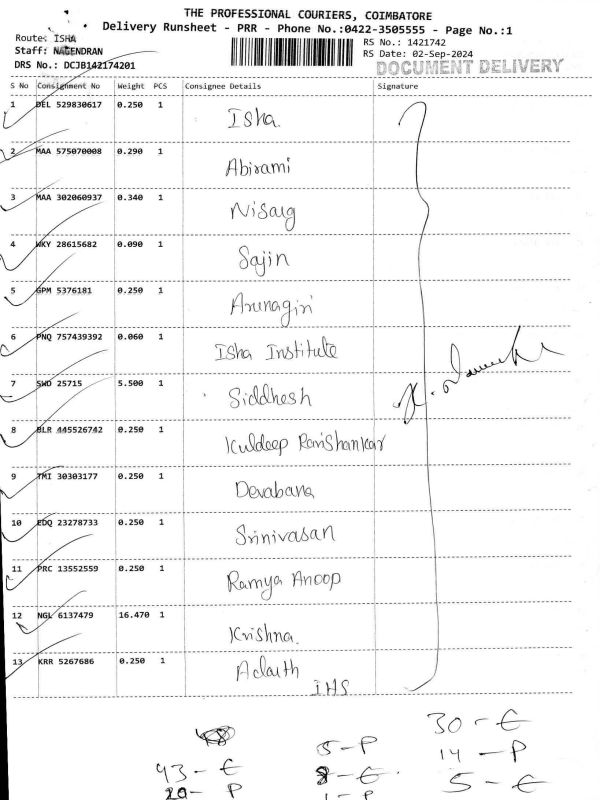 THE PROFESSIONAL COURIERS, COIMBATORE
Delivery Runsheet - PRR - Phone No.:0422-3505555 - Page No.:1
Route: ISHA
Staff: NAGENDRAN
DRS No.: DCJB142174201
RS No.: 1421742
RS Date: 02-Sep-2024
DOCUMENT DELIVERY
S No Consignment No Weight PCS Consignee Details Signature
1 DEL 529830617 0.250 1 Isha.
2 MAA 575070008 0.290 1 Abirami
3 MAA 302060937 0.340 1 Nisarg
4 WKY 28615682 0.090 1 Sajin
5 GPM 5376181 0.250 1 Arunagiri
6 PNQ 757439392 0.060 1 Isha Institute
7 SWD 25715 5.500 1 Siddhesh
8 BLR 445526742 0.250 1 Kuldeep Ravishankar
9 TMI 30303177 0.250 1 Devabana
10 EDQ 23278733 0.250 1 Srinivasan
11 PRC 13552559 0.250 1 Ramya Anoop
12 NGL 6137479 16.470 1 Krishna.
13 KRR 5267686 0.250 1
IHS
30 - E
5 - P 14 - P
43 - E 5 - E
20 - P 1 - P